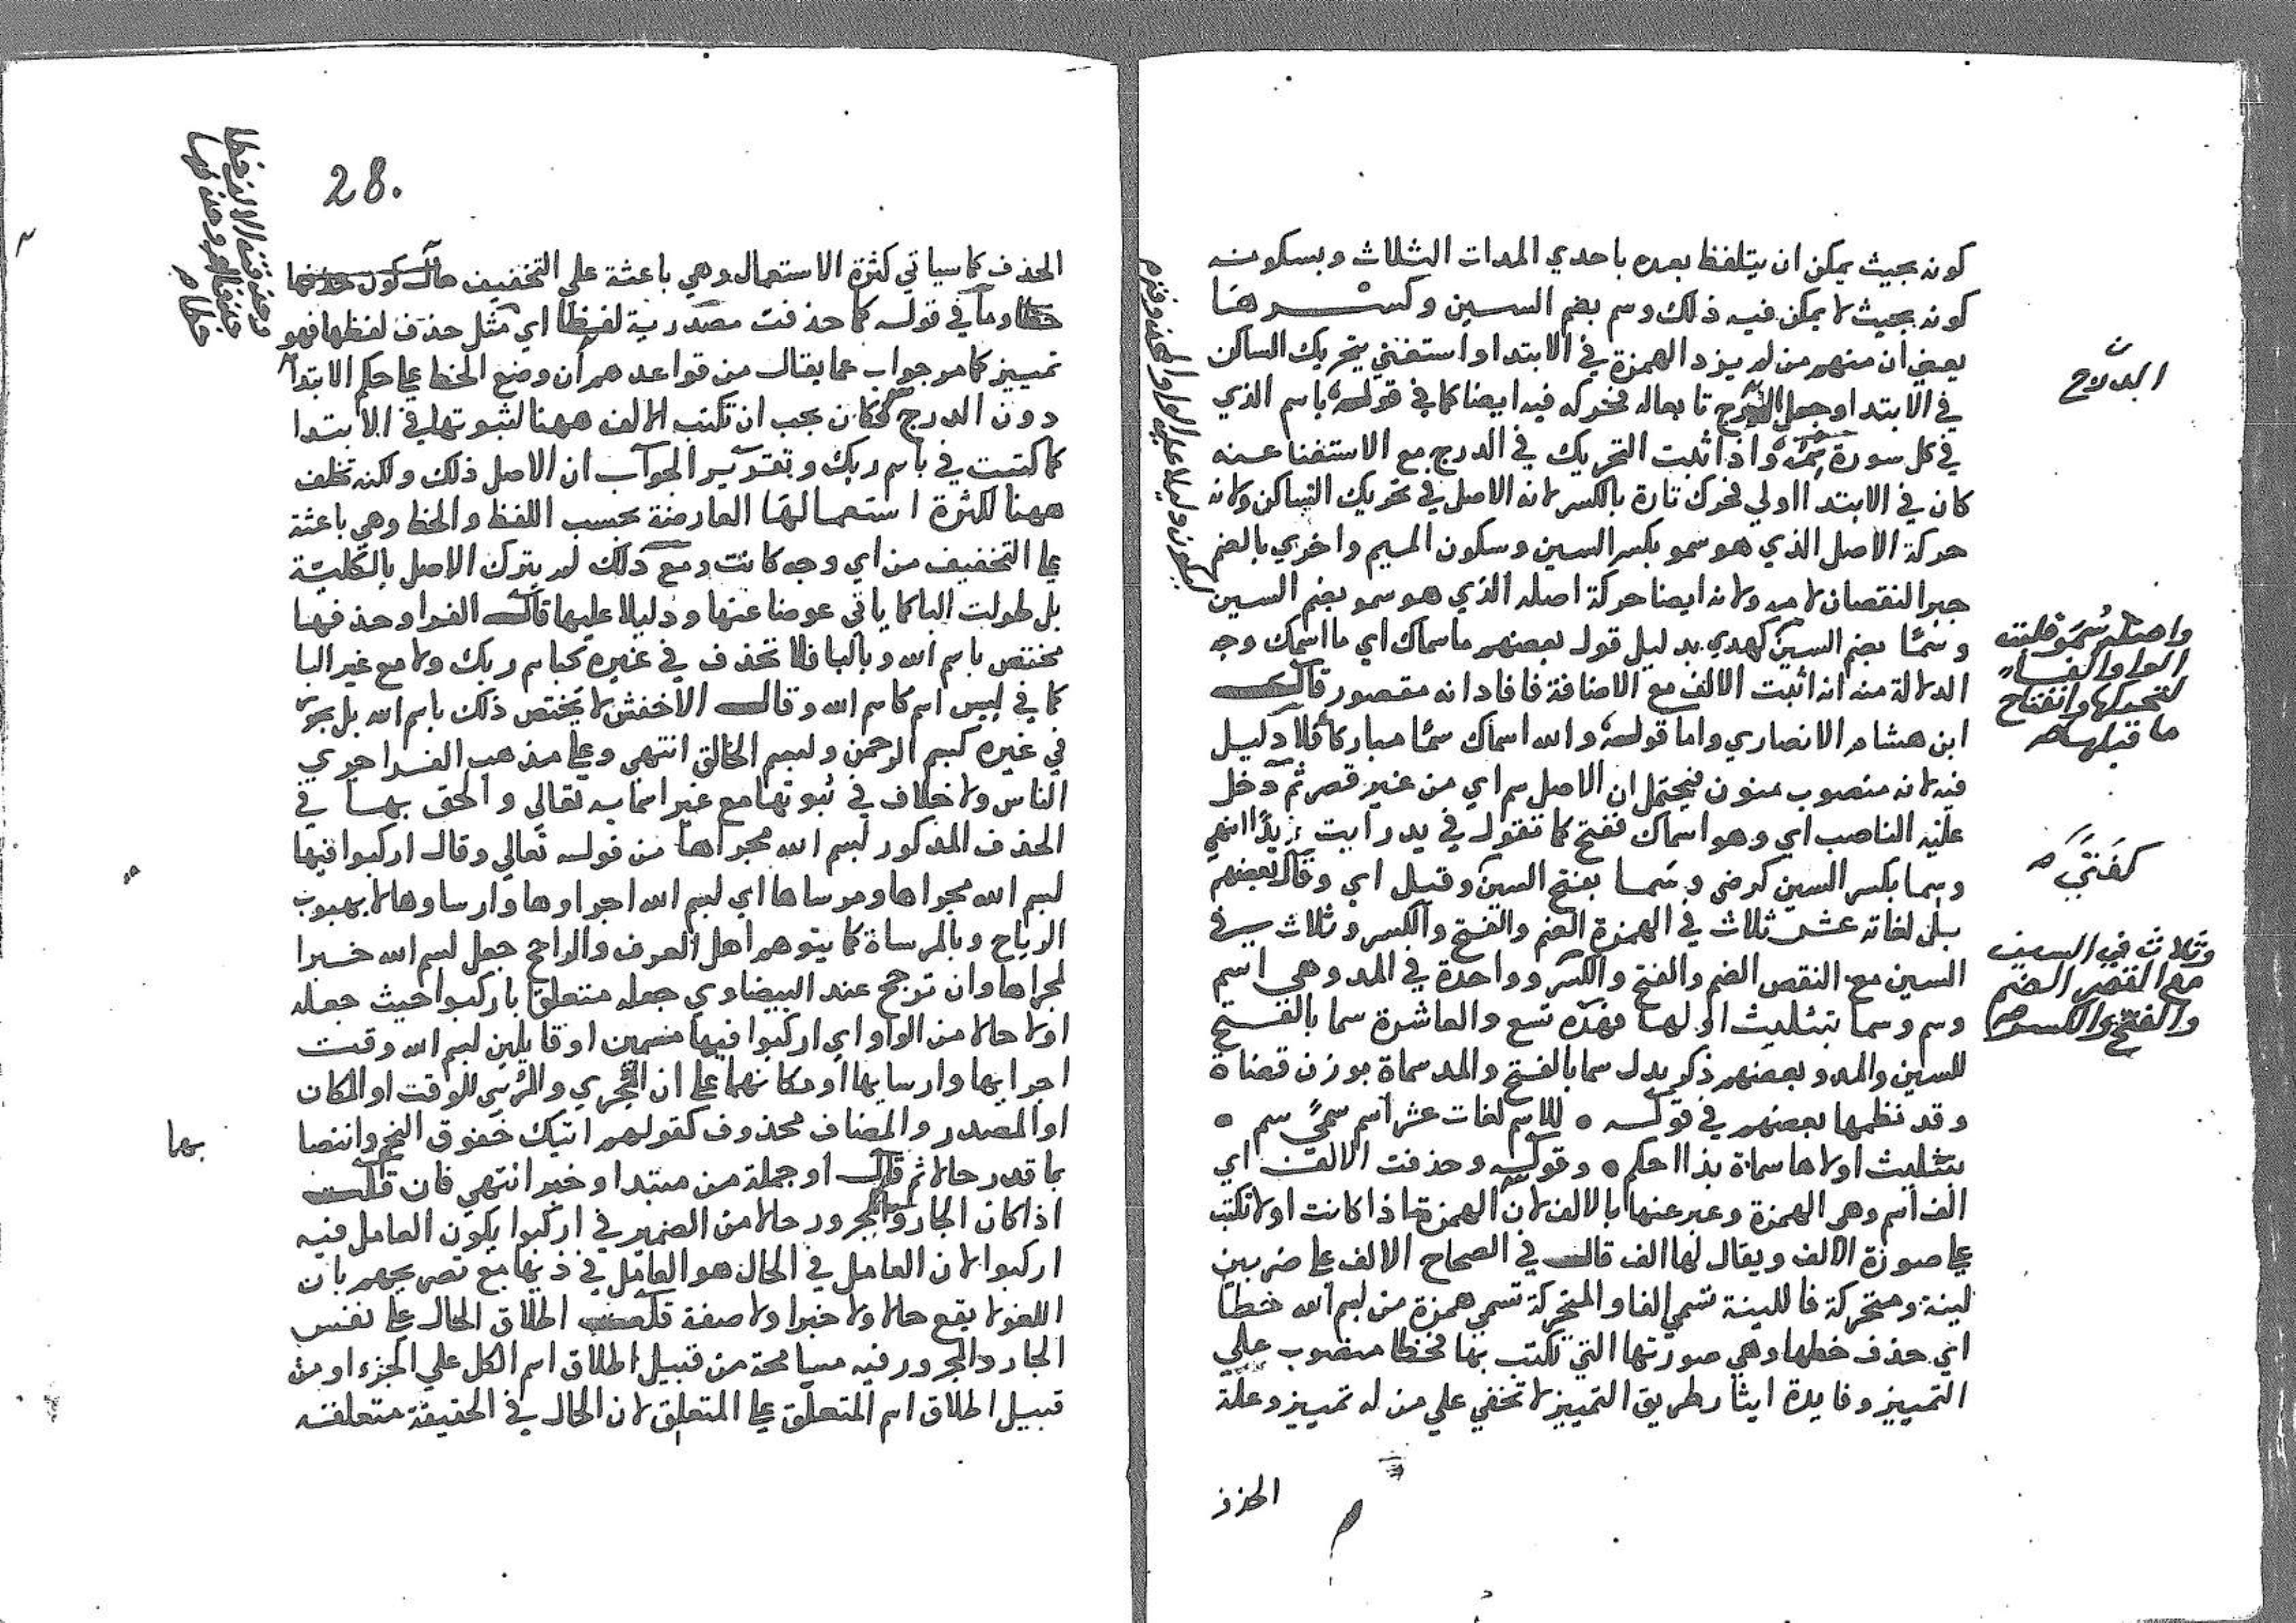 كونه بحيث يمكن ان يتلفظ بعده باحدي المدات الثلاث وبسكونه
كونه بحيث لا يمكن فيه ذلك وسم بضم السين وكسرها
يعني ان منهم من لم يزد الهمزة في الابتدا واستغني بتحريك الساكن
في الابتدا وجعل الدرج تابعا له فحركه فيه ايضا كما في قوله باسم الذي
في كل سورة سمه واذا ثبت التحريك في الدرج مع الاستغنا عنه
كان في الابتدا اولي فحرك تارة بالكسر لانه الاصل في تحريك الساكن ولانه
حركة الاصل الذي هو سمو بكسر السين وسكون الميم واخري بالضم
جبرا لنقصان لامه ولانه ايضا حركة اصله الذي هو سمو بضم السين
وسُمًا بضم السين كهدي بدليل قول بعضهم ما سماك اي ما اسمك وجه
الدلالة منه انه اثبت الالف مع الاضافة فافاد انه مقصور قال
ابن هشام الانصاري واما قوله والله اسماك سمًا مباركا فلا دليل
فيه لانه منصوب منون فيحتمل ان الاصل سم اي من غير قصر ثم دخل
عليه الناصب اي وهو اسماك ففتح كما تقول في يد رايت يدًا انتهي
وسما بكسر السين كرضي وسَما بفتح السين وقيل اي وقال بعضهم
بل لغاته عشر ثلاث في الهمزة الضم والفتح والكسر وثلاث في
السين مع النقص الضم والفتح والكسر وواحدة في المد وهي اسم
وسم وسما بتثليث اولها فهذه تسع والعاشرة سما بالفتح
للسين والمد وبعضهم ذكر بدل سما بالفتح والمد سماة بوزن قضاة
وقد نظمها بعضهم في قوله ه للاسم لغات عشر اسم سميً سم ه
بتثليث اولاها سماة بذا احكم ه وقوله وحذفت الالف اي
الف اسم وهي الهمزة وعبر عنها بالالف لان الهمزة اذا كانت اولا تكتب
علي صورة الالف ويقال لها الف قال في الصحاح الالف علي ضربين
لينة ومتحركة فاللينة تسمي الفا والمتحركة تسمي همزة من لبسم الله خطًا
اي حذف خطها وهي صورتها التي تكتب بها فخطا منصوب علي
التمييز وفايدة ايثار طريق التمييز لا تخفي علي من له تمييز وعلة
الحذف
واصله سُمَو قلبت
الواو الفا
لتحركها وانفتاح
ما قبلها صح
كفَتَي صح
وثلاث في السين
مع القصر الضم
والفتح والكسر صح
28.
الحذف كما سياتي كثرة الاستعمال وهي باعثة علي التخفيف حال كون حذفها
خطا وما في قوله كما حذفت مصدرية لفظًا اي مثل حذف لفظها فهو
تمييز كما مر جواب عما يقال من قواعدهم ان وضع الخط علي حكم الابتدا
دون الدرج فكان يجب ان تكتب الالف ههنا لثبوتها في الابتدا
كما كتبت في باسم ربك وتقرير الجواب ان الاصل ذلك ولكنه تخلف
ههنا لكثرة استعمالها العارضة بحسب اللفظ والخط وهي باعثة
علي التخفيف من اي وجه كانت ومع ذلك لم يترك الاصل بالكلية
بل طولت البا كما ياتي عوضا عنها ودليلا عليها قال الفرا وحذفها
مختص باسم الله وبالبا فلا تحذف في غيره كباسم ربك ولا مع غير البا
كما في ليس اسم كاسم الله وقال الاخفش لا يختص ذلك باسم الله بل يجوز
في غيره كبسم الرحمن ولبسم الخالق انتهي وعلي مذهب الفرا جري
الناس ولا خلاف في ثبوتها مع غير اسمايه تعالي والحق بها في
الحذف المذكور لبسم الله مجراها من قوله تعالي وقال اركبوا فيها
لبسم الله مجراها ومرساها اي لبسم الله اجراوها وارساوها لا بهبوب
الرياح وبالمرساة كما يتوهم اهل العرف والراجح جعل لبسم الله خبرا
لمجراها وان ترجح عند البيضاوي جعله متعلق باركبوا حيث جعله
اولا حالا من الواو اي اركبوا فيها مسمين او قايلين لبسم الله وقت
اجرايها وارسايها او مكانهما علي ان المجري والمرسي للوقت او المكان
او المصدر والمضاف محذوف كقولهم اتيك خفوق النجم وانتصا
بهما
بما قدر حالا ثم قال او جملة من مبتدا وخبر انتهي فان قلت
اذا كان الجار والمجرور حالا من الضمير في اركبوا يكون العامل فيه
اركبوا لان العامل في الحال هو العامل في ذيها مع تصريحهم بان
اللغو لا يقع حالا ولا خبرا ولا صفة قلت اطلاق الحال علي نفس
الجار والمجرور فيه مسامحة من قبيل اطلاق اسم الكل علي الجزء او من
قبيل اطلاق اسم المتعلق علي المتعلق لان الحال في الحقيقة متعلقه